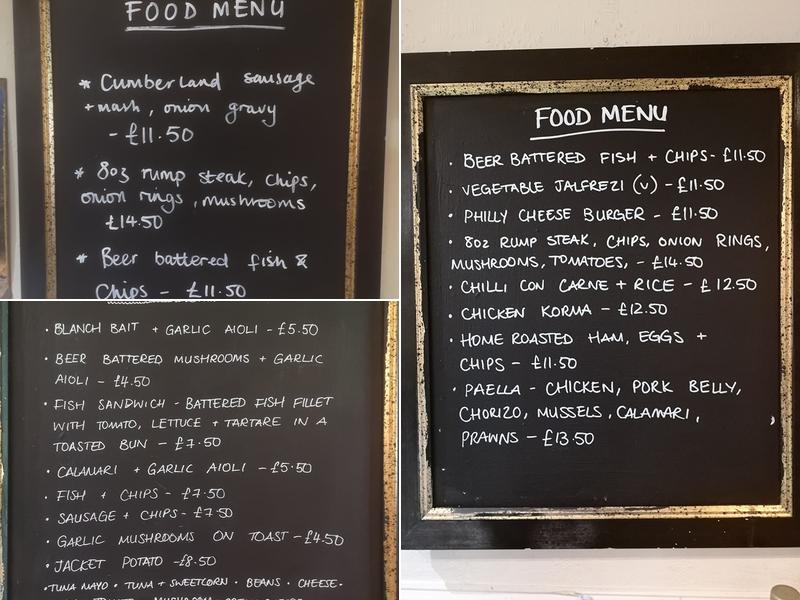 FOOD MENU
* Cumberland sausage
+ mash, onion gravy
- £11.50
* 8oz rump steak, chips,
onion rings, mushrooms
£14.50
* Beer battered fish &
Chips - £11.50
· BLANCH BAIT + GARLIC AIOLI - £5.50
· BEER BATTERED MUSHROOMS + GARLIC
AIOLI - £4.50
· FISH SANDWICH - BATTERED FISH FILLET
WITH TOMATO, LETTUCE + TARTARE IN A
TOASTED BUN - £7.50
· CALAMARI + GARLIC AIOLI - £5.50
· FISH + CHIPS - £7.50
· SAUSAGE + CHIPS - £7.50
· GARLIC MUSHROOMS ON TOAST - £4.50
· JACKET POTATO - £8.50
· TUNA MAYO · TUNA + SWEETCORN · BEANS · CHEESE ·
FOOD MENU
· BEER BATTERED FISH + CHIPS - £11.50
· VEGETABLE JALFREZI (V) - £11.50
· PHILLY CHEESE BURGER - £11.50
· 8oz RUMP STEAK, CHIPS, ONION RINGS,
MUSHROOMS, TOMATOES, - £14.50
· CHILLI CON CARNE + RICE - £12.50
· CHICKEN KORMA - £12.50
· HOME ROASTED HAM, EGGS +
CHIPS - £11.50
· PAELLA - CHICKEN, PORK BELLY,
CHORIZO, MUSSELS, CALAMARI,
PRAWNS - £13.50